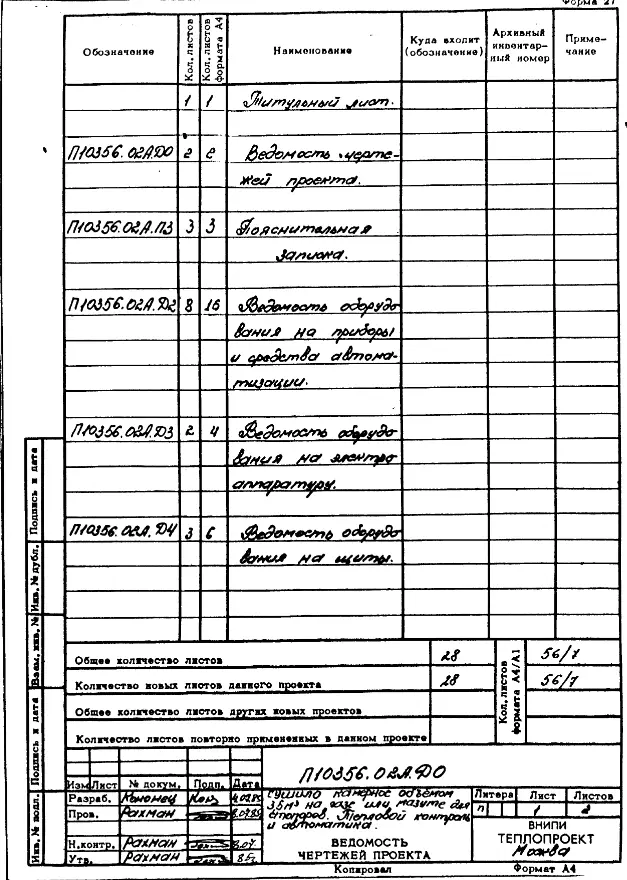 Форма 21
Обозначение Кол. листов Кол. листов формата А4 Наименование Куда входит (обозначение) Архивный инвентарный номер Приме-чание
1 1 Титульный лист.
П10356.02А.Д0 2 2 Ведомость черте-
жей проекта.
П10356.02А.ПЗ 3 3 Пояснительная
записка.
П10356.02А.Д2 8 16 Ведомость оборудо
вания на приборы
и средства автома-
тизации.
П10356.02А.Д3 2 4 Ведомость оборудо
вания на электро
аппаратуру.
П10356.02А.Д4 3 6 Ведомость оборудо
вания на щиты.
Подпись и дата
Инв. № дубл.
Взам. инв. №
Подпись и дата
Инв. № подл.
Общее количество листов 28 Кол. листов формата А4/А1 56/7
Количество новых листов данного проекта 28 56/7
Общее количество листов других новых проектов
Количество листов повторно примененных в данном проекте
П10356.02А.Д0
Изм Лист № докум. Подп. Дата
Разраб. Кононец
Пров. Рахман
Н.контр. Рахман
Утв. Рахман
Сушило камерное объемом
3,5м³ на газе или мазуте для
стопоров. Тепловой контроль
и автоматика.
ВЕДОМОСТЬ
ЧЕРТЕЖЕЙ ПРОЕКТА
Литера Лист Листов
П 1 2
ВНИПИ
ТЕПЛОПРОЕКТ
Москва
Копировал Формат А4